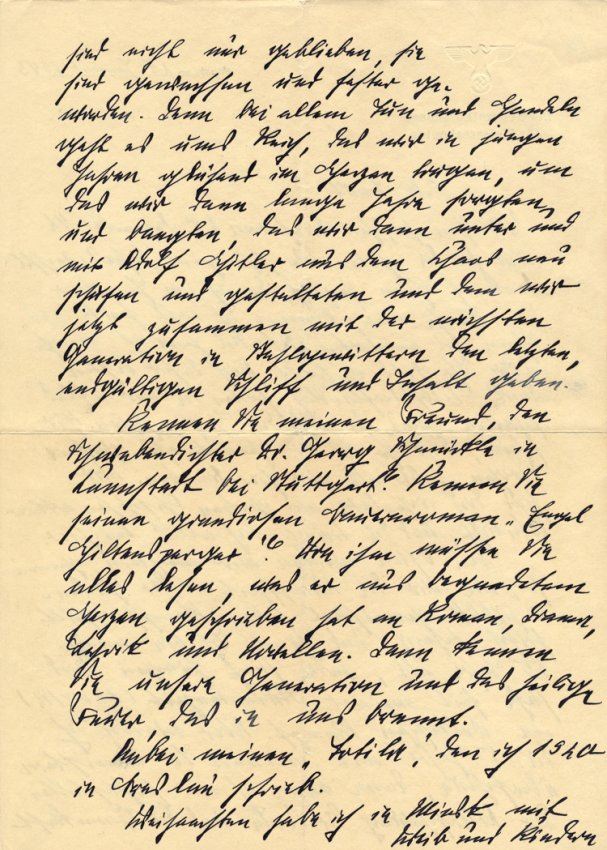 sind nicht nur geblieben, sie
sind gewachsen und fester ge-
worden. Denn bei allem Tun und Handeln
geht es ums Reich, das wir in jungen
Jahren glühend im Herzen trugen, um
das wir dann lange Jahre sorgten
und bangten, das wir dann unter und
mit Adolf Hitler aus dem Chaos neu
schufen und gestalteten und dem wir
jetzt zusammen mit der nächsten
Generation in Stahlgewittern den letzten,
endgültigen Schliff und Inhalt geben.
Kennen Sie meinen Freund, den
Schwabendichter Dr. Georg Schmückle in
Cannstatt bei Stuttgart? Kennen Sie
seinen grandiosen Bauernroman „Engel
Hiltensperger"? Von ihm müssen Sie
alles lesen, was er aus begnadetem
Herzen geschrieben hat an Roman, Drama,
Lyrik und Novellen. Dann kennen
Sie unsere Generation und das heilige
Feuer das in uns brennt.
Anbei meinen „Totila", den ich 1920
in Breslau schrieb.
Weihnachten habe ich in Minsk mit
Weib und Kindern